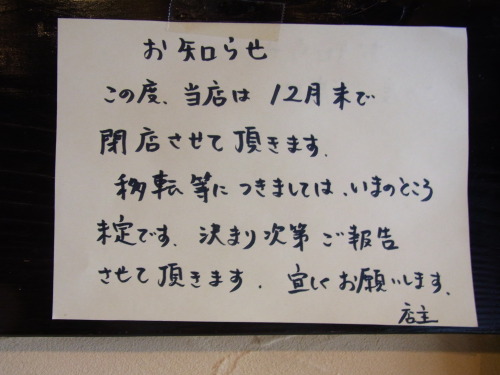 お知らせ
この度、当店は12月末で
閉店させて頂きます.
移転等につきましては、いまのところ
未定です. 決まり次第ご報告
させて頂きます. 宜しくお願いします.
店主